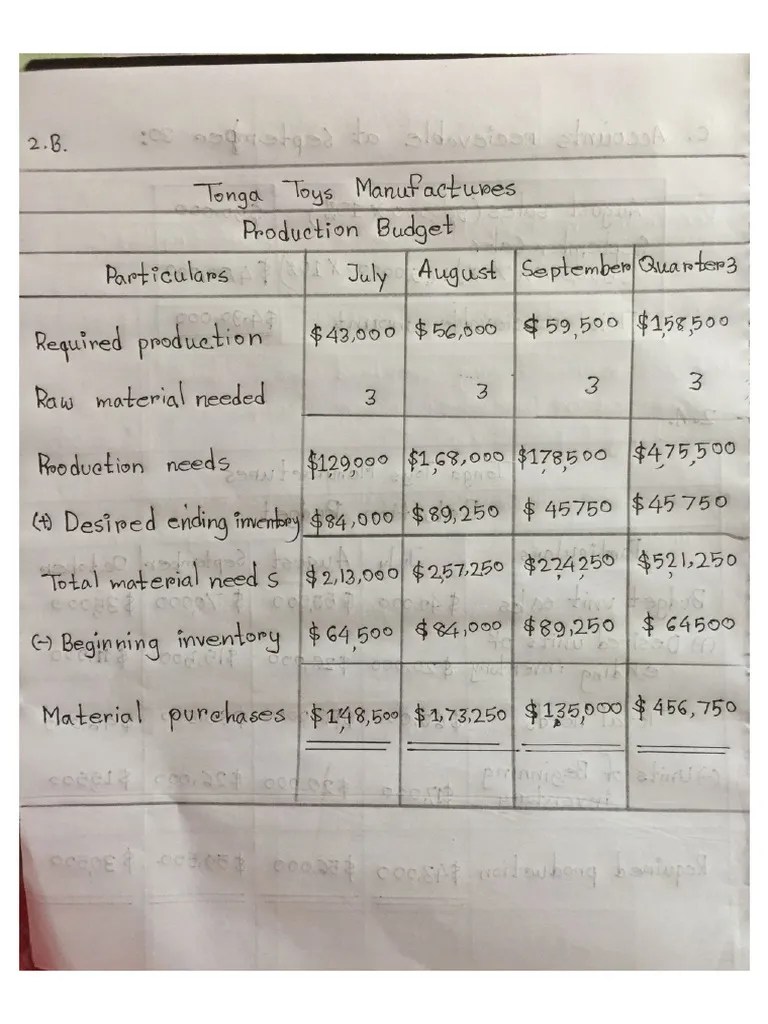 2.B.
Tonga Toys Manufactures
Production Budget
Particulars July August September Quarter3
Required production $43,000 $56,000 $59,500 $158,500
Raw material needed 3 3 3 3
Production needs $129,000 $1,68,000 $178,500 $475,500
(+) Desired ending inventory $84,000 $89,250 $45750 $45750
Total material needs $2,13,000 $257,250 $224,250 $521,250
(-) Beginning inventory $64,500 $84,000 $89,250 $64500
Material purchases $148,500 $1,73,250 $135,000 $456,750